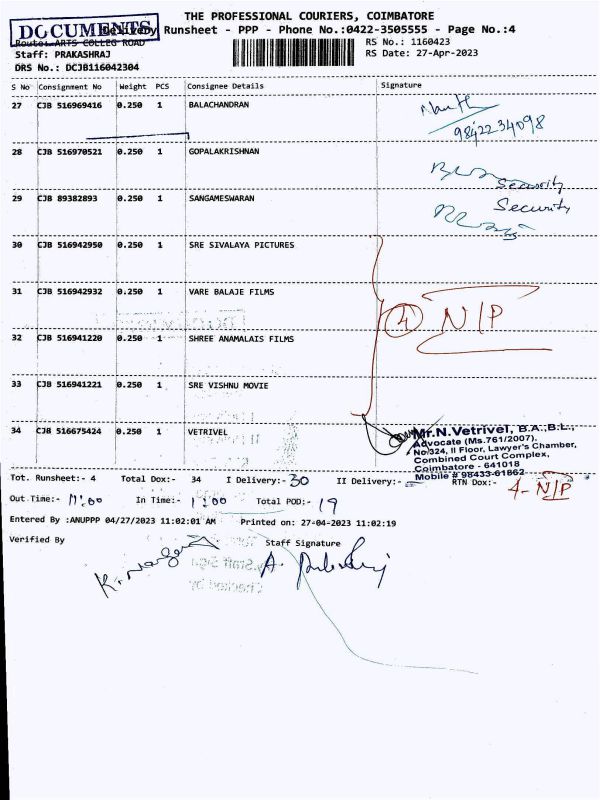 THE PROFESSIONAL COURIERS, COIMBATORE
DOCUMENTS
Delivery Runsheet - PPP - Phone No.:0422-3505555 - Page No.:4
Route: ARTS COLLEG ROAD
RS No.: 1160423
Staff: PRAKASHRAJ
RS Date: 27-Apr-2023
DRS No.: DCJB116042304
S No Consignment No Weight PCS Consignee Details Signature
27 CJB 516969416 0.250 1 BALACHANDRAN
9842234098
28 CJB 516970521 0.250 1 GOPALAKRISHNAN
Security
29 CJB 89382893 0.250 1 SANGAMESWARAN
Security
30 CJB 516942950 0.250 1 SRE SIVALAYA PICTURES
31 CJB 516942932 0.250 1 VARE BALAJE FILMS
4 N/P
32 CJB 516941220 0.250 1 SHREE ANAMALAIS FILMS
33 CJB 516941221 0.250 1 SRE VISHNU MOVIE
34 CJB 516675424 0.250 1 VETRIVEL
Mr.N.Vetrivel, B.A.,B.L.,
Advocate (Ms.761/2007),
No 324, II Floor, Lawyer's Chamber,
Combined Court Complex,
Coimbatore - 641018
Mobile # 98433-61862
Tot. Runsheet:- 4 Total Dox:- 34 I Delivery:- 30 II Delivery:- RTN Dox:- 4 - N/P
Out Time:- 11:00 In Time:- 1:00 Total POD:- 19
Entered By :ANUPPP 04/27/2023 11:02:01 AM Printed on: 27-04-2023 11:02:19
Verified By Staff Signature